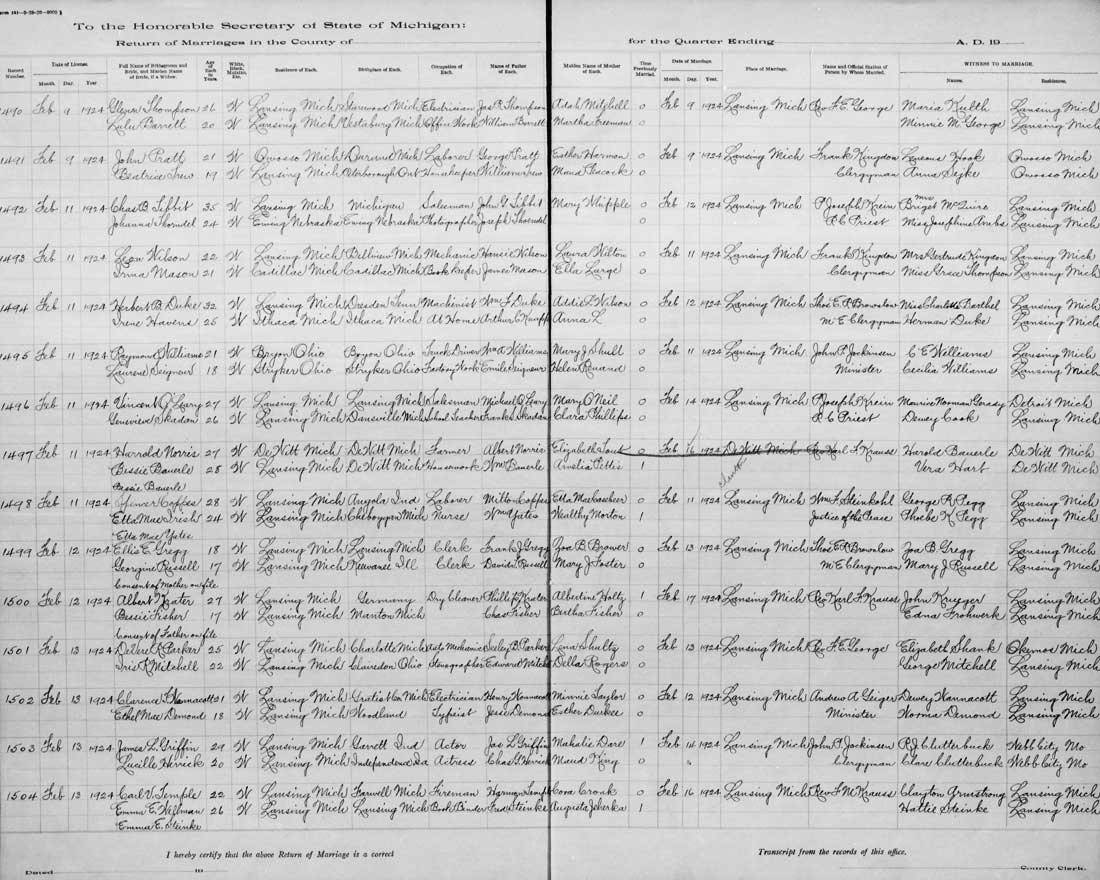 To the Honorable Secretary of State of Michigan:
Return of Marriages in the County of
for the Quarter Ending
A. D. 19
Record Number.
Date of License.
Month. Day. Year
Full Name of Bridegroom and Bride, and Maiden Name of Bride, if a Widow.
Age of Each in Years.
White, Black, Mulatto, Etc.
Residence of Each.
Birthplace of Each.
Occupation of Each.
Name of Father of Each.
Maiden Name of Mother of Each.
Times Previously Married.
Date of Marriage.
Month. Day. Year.
Place of Marriage.
Name and Official Station of Person by Whom Married.
WITNESS TO MARRIAGE.
Names. Residence.
1490 Feb 9 1924 Glenn Thompson 26 W Lansing Mich Sherwood Mich Electrician Jas R Thompson Adah Mitchell 0 Feb 9 1924 Lansing Mich Rev F E George Maria Kulth Lansing Mich
Lulu Barrett 20 W Lansing Mich Vestaburg Mich Office Work William Barrett Martha Freeman 0 Minnie M George Lansing Mich
1491 Feb 9 1924 John Pratt 21 W Owosso Mich Durand Mich Laborer George Pratt Esther Harmon 0 Feb 9 1924 Lansing Mich Frank Kingdon Hook Owosso Mich
Beatrice 19 W Lansing Mich Peterborough Ont Housekeeper William Maud Peacock 0 Clergyman Anna Owosso Mich
1492 Feb 11 1924 Chas B Tibbit 35 W Lansing Mich Michigan Salesman John G Tibbit Mary Whipple 0 Feb 12 1924 Lansing Mich P Joseph Krein Mrs Briget McGuire Lansing Mich
Johanna Thorndel 24 W Ewing Nebraska Ewing Nebraska Photographer Joseph Thorndel 0 R C Priest Miss Josephine Lansing Mich
1493 Feb 11 1924 Leon Wilson 22 W Lansing Mich Bellevue Mich Mechanic Wilson Laura Wilton 0 Feb 11 1924 Lansing Mich Frank Kingdon Mrs Gertrude Kingdon Lansing Mich
Irma Mason 21 W Cadillac Mich Cadillac Mich Book Keeper James Mason Ella Large 0 Clergyman Miss Grace Thompson Lansing Mich
1494 Feb 11 1924 Herbert B Duke 32 W Lansing Mich Dresden Tenn Machinist Wm F Duke Addie L Wilson 0 Feb 12 1924 Lansing Mich Thos E R Brownlow Miss Charlotte Barthel Lansing Mich
Irene Havens 25 W Ithaca Mich Ithaca Mich At Home Arthur C Anna L 0 M E Clergyman Herman Duke Lansing Mich
1495 Feb 11 1924 Raymond Williams 21 W Bryon Ohio Bryon Ohio Truck Driver Wm A Williams Mary J Shull 0 Feb 11 1924 Lansing Mich John P Jockinsen C E Williams Lansing Mich
Laurene Seigneur 18 W Stryker Ohio Stryker Ohio Factory Work Emile Seigneur Helen Renand 0 Minister Cecilia Williams Lansing Mich
1496 Feb 11 1924 Vincent J Leary 27 W Lansing Mich Lansing Mich Salesman Michael J Leary Mary O'Neil 0 Feb 14 1924 Lansing Mich P Joseph Krein Maurice Norman Geraty Detroit Mich
Genevieve Skadan 26 W Lansing Mich Dansville Mich School Teacher Frank Skadan Clara Phillips 0 R C Priest Dewey Cook Lansing Mich
1497 Feb 11 1924 Harrold Norris 27 W DeWitt Mich DeWitt Mich Farmer Albert Norris Elizabeth Lout 0 Feb 16 1924 DeWitt Mich Rev Karl F Krauss Harold Bauerle DeWitt Mich
Bessie Bauerle 28 W Lansing Mich DeWitt Mich Housework Wm Bauerle Amelia Pettis 1 Vera Hart DeWitt Mich
Bessie Bauerle
1498 Feb 11 1924 Spencer Coffee 28 W Lansing Mich Angola Ind Laborer Milton Coffee Etta 0 Feb 11 1924 Lansing Mich Wm F Steinkohl George R Pegg Lansing Mich
Etta Mae Irish 24 W Lansing Mich Cheboygan Mich Nurse Wm Yates Wealthy Morton 1 Justice of the Peace Phoebe K Pegg Lansing Mich
Etta Mae Yates
1499 Feb 12 1924 Ellis E Gregg 18 W Lansing Mich Lansing Mich Clerk Frank J Gregg Zoa B Brower 0 Feb 13 1924 Lansing Mich Thos E R Brownlow Zoa B Gregg Lansing Mich
Georgine Russell 17 W Lansing Mich Kewanee Ill Clerk David L Russell Mary J Foster 0 M E Clergyman Mary J Russell Lansing Mich
Consent of Mother on file
1500 Feb 12 1924 Albert Krater 27 W Lansing Mich Germany Dry Cleaner Phillip Krater Albertina Holty 1 Feb 17 1924 Lansing Mich Rev Karl F Krauss John Krueger Lansing Mich
Bessie Fisher 17 W Lansing Mich Manton Mich Chas Fisher Bertha Fisher 0 Edna Frohwerk Lansing Mich
Consent of Father on file
1501 Feb 13 1924 R Parker 25 W Lansing Mich Charlotte Mich Auto Mechanic Seeley B Parker Lena Shultz 0 Feb 13 1924 Lansing Mich Rev F E George Elizabeth Shank Okemos Mich
Iris R Mitchell 22 W Lansing Mich Clarington Ohio Stenographer Edward Mitchell Della Rogers 0 George Mitchell Lansing Mich
1502 Feb 13 1924 Clarence F Wannacott 21 W Lansing Mich Gratiot Co Mich Electrician Henry Wannacott Minnie Taylor 0 Feb 12 1924 Lansing Mich Andrew A Geiger Dewey Wannacott Lansing Mich
Ethel Mae Demond 18 W Lansing Mich Woodland Typist Jesse Demond Esther Durkee 0 Minister Norma Demond Lansing Mich
1503 Feb 13 1924 James L Griffin 29 W Lansing Mich Garrett Ind Actor Jas L Griffin Mahalie Dare 1 Feb 14 1924 Lansing Mich John P Jockinsen R J Clutterbuck Webb City Mo
Lucille Herrick 20 W Lansing Mich Independence Actress Chas G Herrick Maud King 0 " Clergyman Clare Clutterbuck Webb City Mo
1504 Feb 13 1924 Carl V Temple 22 W Lansing Mich Farwell Mich Fireman Harmon Temple Cora Cronk 0 Feb 16 1924 Lansing Mich Rev F M Krauss Clayton Armstrong Lansing Mich
Emma E Wellman 26 W Lansing Mich Lansing Mich Book Binder Fred Steinke Augusta Jeherka 1 Hattie Steinke Lansing Mich
Emma E. Steinke
I hereby certify that the above Return of Marriage is a correct
Transcript from the records of this office.
Dated 19
County Clerk.